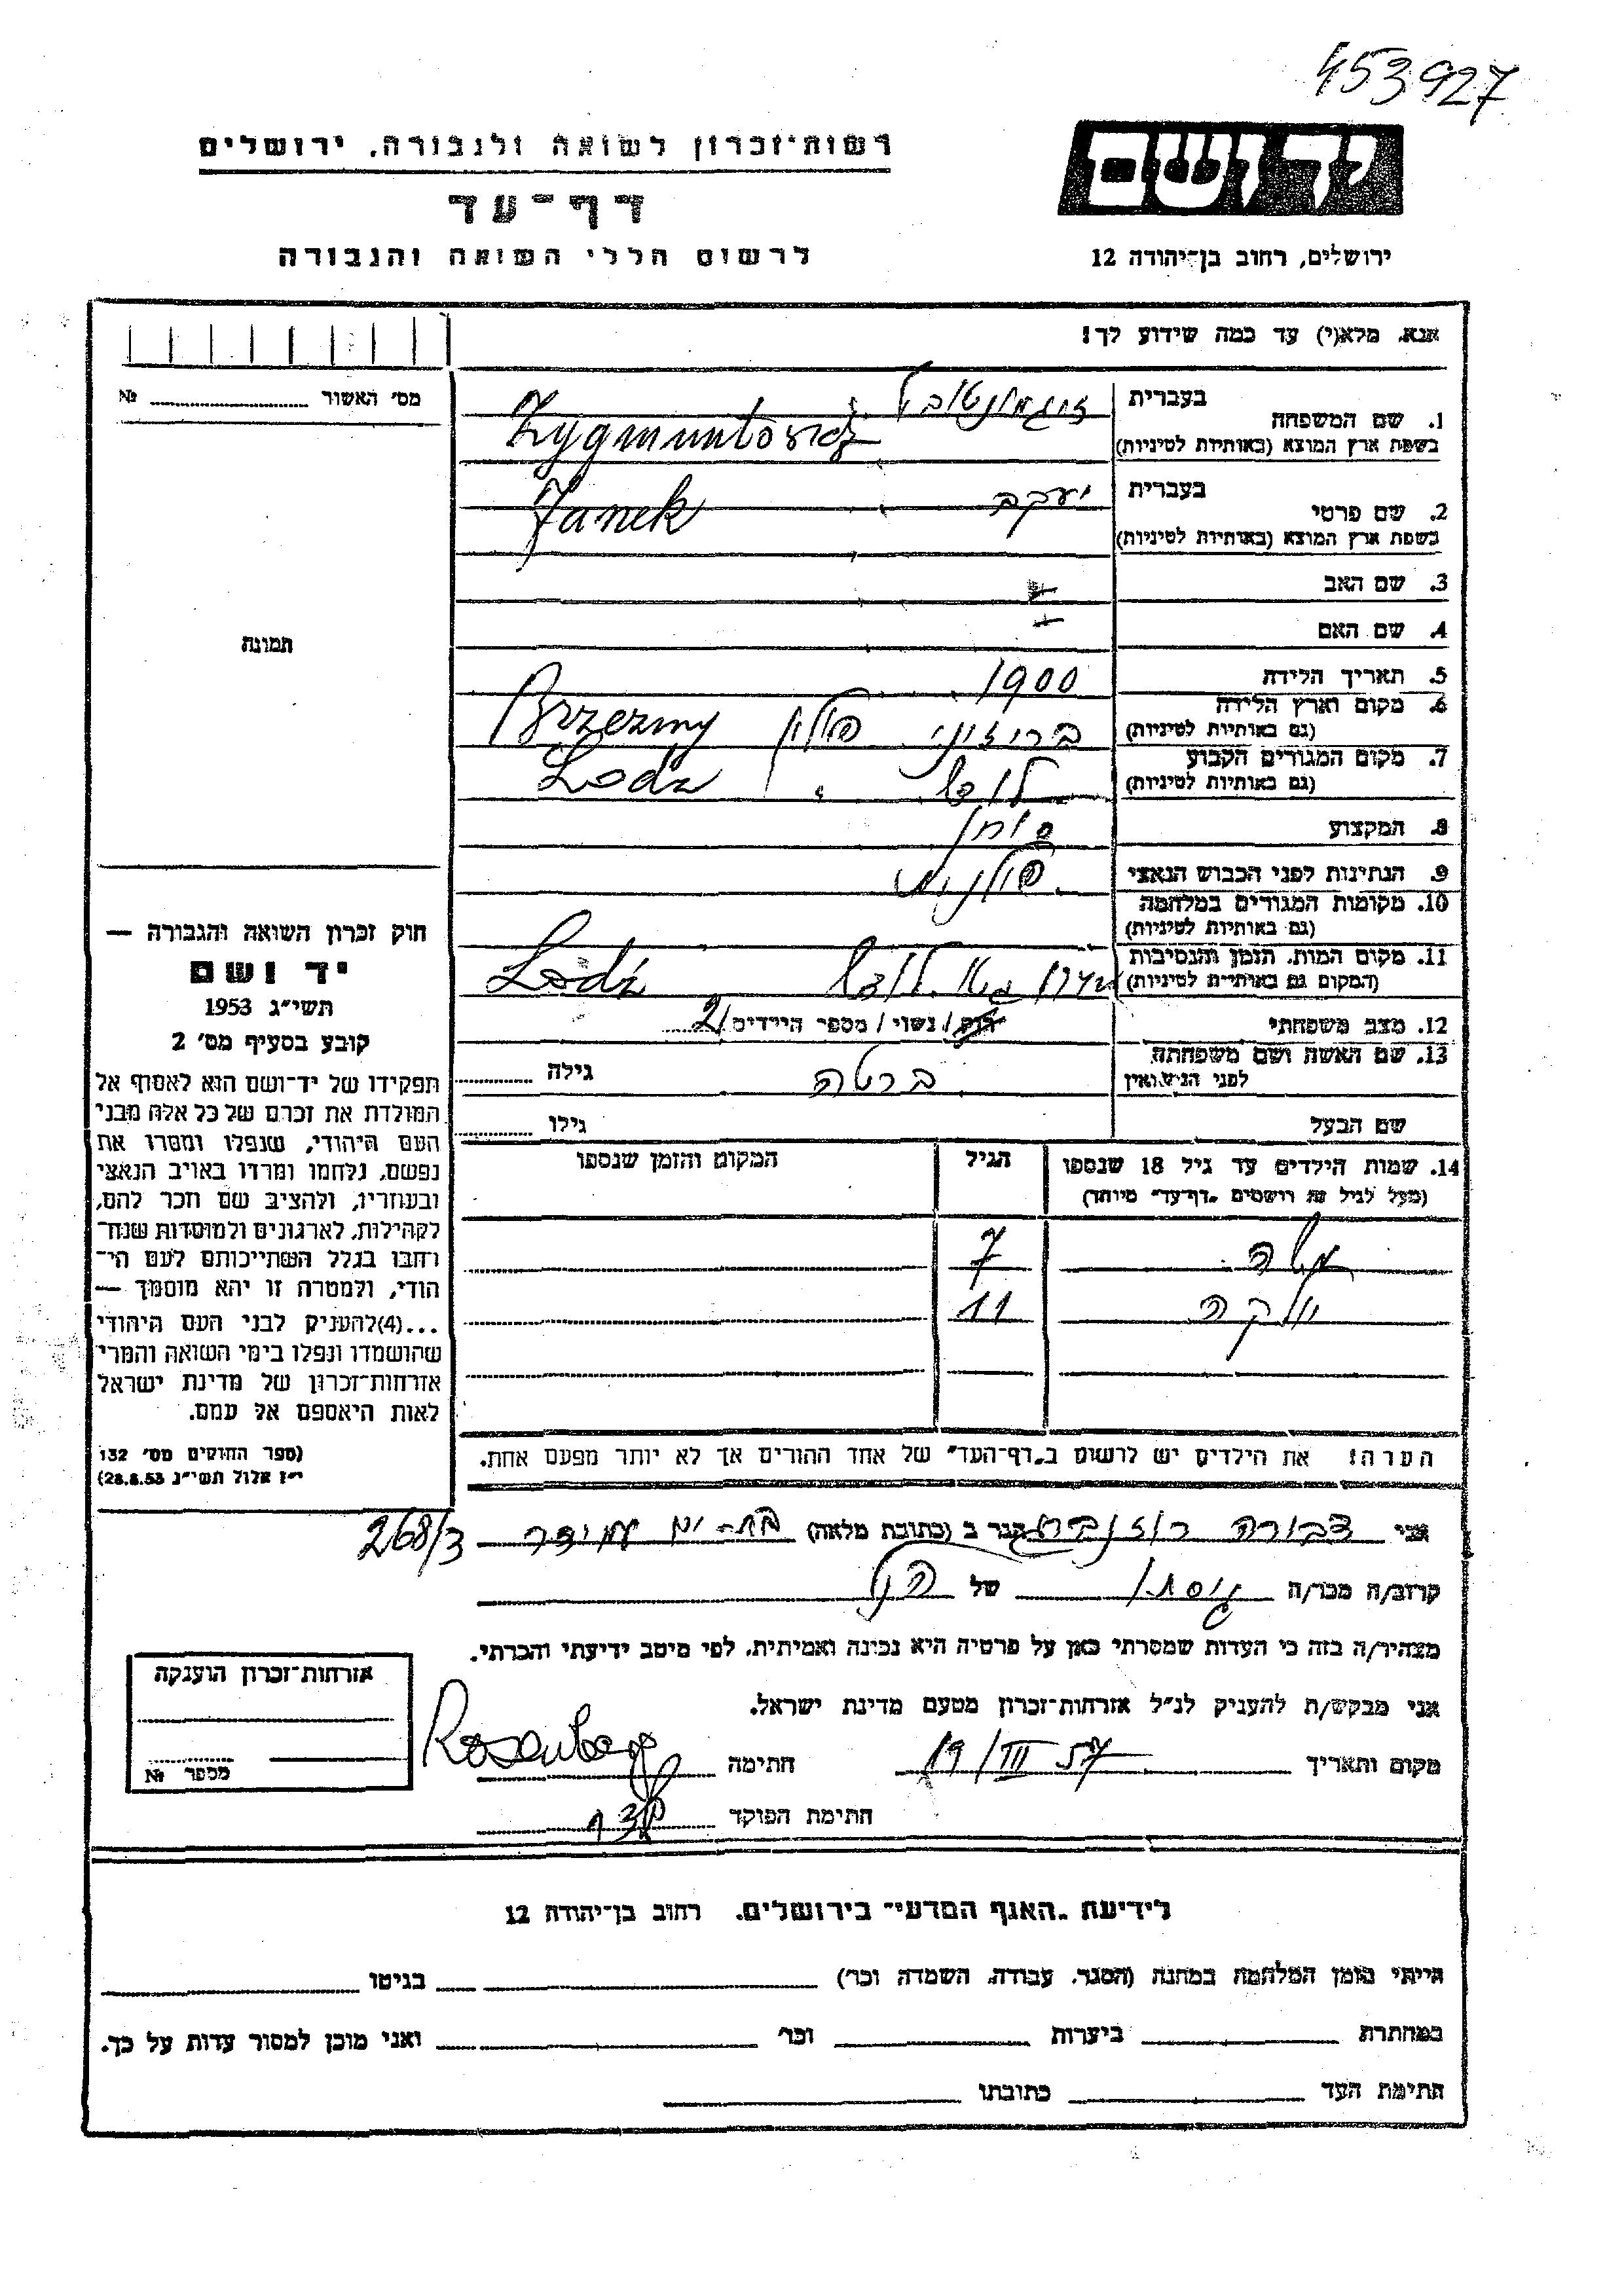 453927
רשות־זכרון לשואה ולגבורה, ירושלים
יד ושם
דף־עד
לרשום חללי השואה והגבורה
ירושלים, רחוב בן־יהודה 12
אנא, מלא(י) עד כמה שידוע לך!
מס' האשור № 
1. שם המשפחה
בעברית זיגמונטוביץ
בשפת ארץ המוצא (באותיות לטיניות) Zygmuntovicz
2. שם פרטי
בעברית יעקב
בשפת ארץ המוצא (באותיות לטיניות) Janek
3. שם האב
4. שם האם
תמונה
5. תאריך הלידה 1900
6. מקום וארץ הלידה
(גם באותיות לטיניות) בריזיני פולין Brzeziny
7. מקום המגורים הקבוע
(גם באותיות לטיניות) לודז' Lodz
8. המקצוע
9. הנתינות לפני הכבוש הנאצי פולנית
10. מקומות המגורים במלחמה
(גם באותיות לטיניות)
11. מקום המות, הזמן והנסיבות
(המקום גם באותיות לטיניות) גטו לודז' Lódź
12. מצב משפחתי רווק / נשוי / מספר הילדים 2
13. שם האשה ושם משפחתה
לפני הנישואין ברטה גילה
שם הבעל גילו
14. שמות הילדים עד גיל 18 שנספו
(מעל לגיל זה רושמים "דף־עד" מיוחד)
הגיל
המקום והזמן שנספו
7
11
הערה! את הילדים יש לרשום ב"דף־העד" של אחד ההורים אך לא יותר מפעם אחת.
חוק זכרון השואה והגבורה —
יד ושם
תשי"ג 1953
קובע בסעיף מס' 2
תפקידו של יד־ושם הוא לאסוף אל
המולדת את זכרם של כל אלה מבני
העם היהודי, שנפלו ומסרו את
נפשם, נלחמו ומרדו באויב הנאצי
ובעוזריו, ולהציב שם וזכר להם,
לקהילות, לארגונים ולמוסדות שנח־
רבו בגלל השתייכותם לעם הי־
הודי, ולמטרה זו יהא מוסמך —
...(4)להעניק לבני העם היהודי
שהושמדו ונפלו בימי השואה והמרי
אזרחות־זכרון של מדינת ישראל
לאות היאספם אל עמם.
(ספר החוקים מס' 132
י"ז אלול תשי"ג 28.8.53)
אני דבורה רוזנברג הגר ב (כתובת מלאה) בת-ים עמידר 268/3
קרוב/ה מכר/ה גיסתו של הנ"ל
מצהיר/ה בזה כי העדות שמסרתי כאן על פרטיה היא נכונה ואמיתית, לפי מיטב ידיעתי והכרתי.
אני מבקש/ת להעניק לנ"ל אזרחות־זכרון מטעם מדינת ישראל.
מקום ותאריך 19/III 57 חתימה Rosenberg
חתימת הפוקד
אזרחות־זכרון הוענקה
מספר №
לידיעת "האגף המדעי" בירושלים, רחוב בן־יהודה 12
הייתי בזמן המלחמה במחנה (הסגר, עבודה, השמדה וכו') בגיטו
במחתרת ביערות וכו' ואני מוכן למסור עדות על כך.
חתימת העד כתובתו